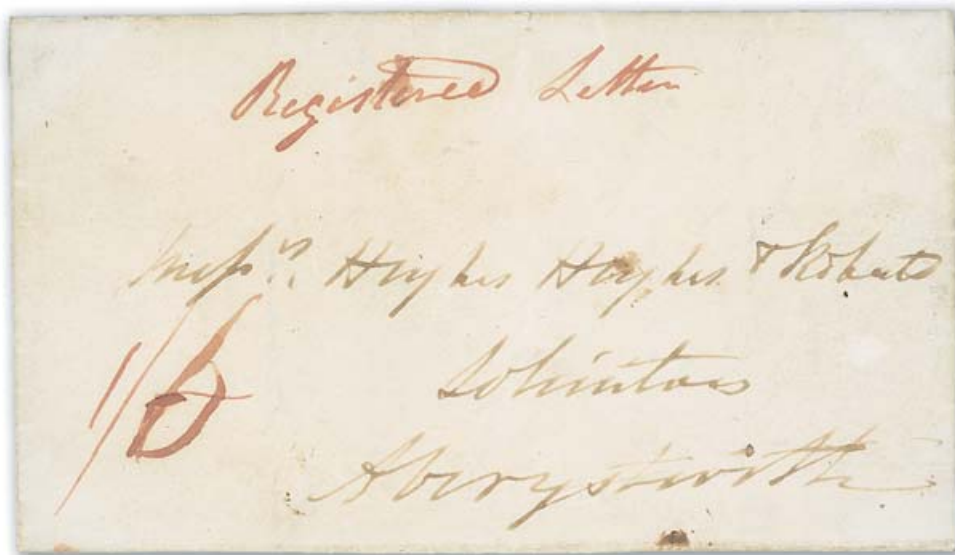 Registered Letter
Messrs. Hughes Hughes & Roberts
Solicitors
1/6
Aberystwith